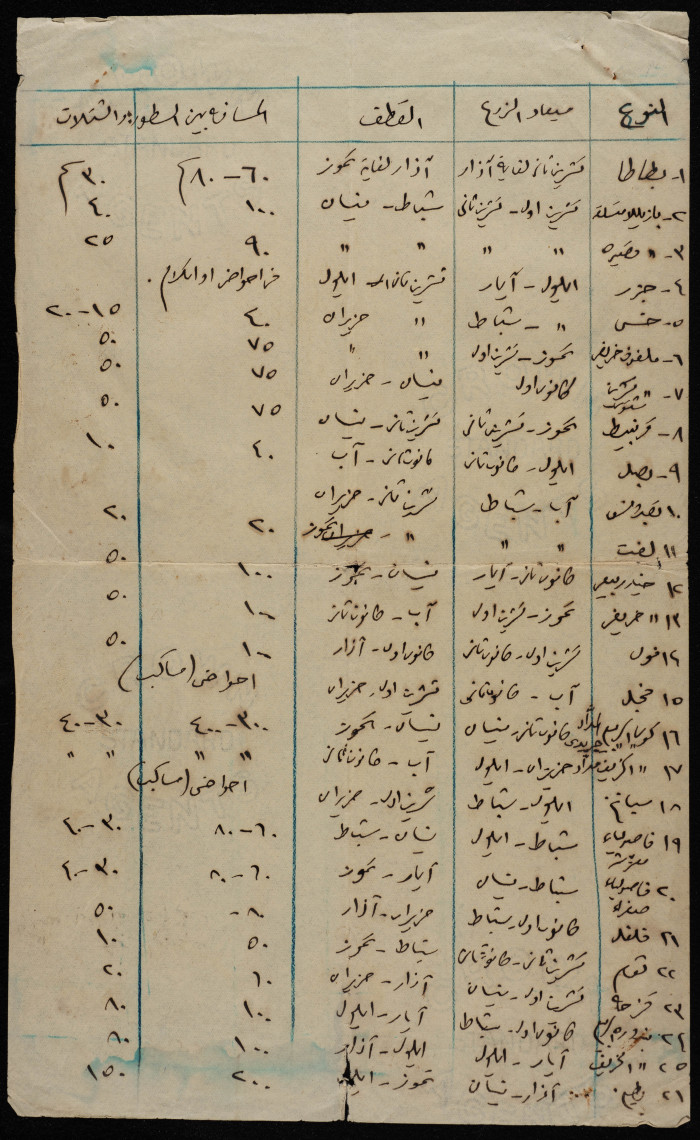 النوع ميعاد الزرع القطف المسافة بين السطور والشتلات
١- بطاطا تشرين ثاني لغاية آذار آذار لغاية تموز ٦٠-٨٠ ٣٠
٢- بازيلا تشرين اول - تشرين ثاني شباط - نيسان ١٠٠ ٤٠
٣- " قصيره " " " " ٩٠ ٢٥
٤- جزر ايلول - آيار تشرين ثاني - ايلول احواض او اتلام
٥- خس " - شباط " حزيران ٤٠ ١٥-٢٠
٦- ملفوف خريفي تموز - تشرين اول " " ٧٥ ٥٠
٧- " كانون اول نيسان - حزيران ٧٥ ٥٠
٨- قرنبيط تموز - تشرين ثاني تشرين ثاني - نيسان ٧٥ ٥٠
٩- بصل ايلول - كانون ثاني كانون ثاني - آب ٤٠ ١٠
١٠ بقدونس آب - شباط تشرين ثاني - حزيران
١١ لفت " " " - تموز ٢٠ ٢٠
١٢ خيار ربيعي كانون ثاني - آيار نيسان - تموز ١٠٠ ٥٠
١٣ " خريفي تموز - تشرين اول آب - كانون ثاني ١٠٠ ٥٠
١٤ فول تشرين اول - كانون ثاني كانون اول - آذار ١٠٠ ٥٠
١٥ فجل آب - كانون ثاني تشرين اول - حزيران احواض (مساكب)
١٦ كوسا كانون ثاني - نيسان نيسان - تموز ٣٠٠-٤٠٠ ٣٠-٤٠
١٧ " حزيران - ايلول آب - كانون ثاني " " " "
١٨ سبانخ ايلول - شباط تشرين اول - حزيران احواض (مساكب)
١٩ فاصولياء شباط - ايلول نيسان - شباط ٦٠-٨٠ ٣٠-٤٠
٢٠ فاصولياء صفراء شباط - نيسان آيار - تموز ٦٠-٨٠ ٣٠-٤٠
٢١ فلفل كانون اول - شباط حزيران - آذار ٨٠ ٥٠
٢٢ تشرين ثاني - كانون ثاني شباط - تموز ٥٠ ١٠
٢٣ تشرين اول - نيسان آذار - حزيران ٦٠ ٢٠
٢٤ بندوره كانون اول - شباط آيار - ايلول ١٠٠ ٨٠
٢٥ " آيار - ايلول ايلول - آذار ١٠٠ ٨٠
٢٦ بطيخ آذار - نيسان تموز - ايلول ٢٠٠ ١٥٠